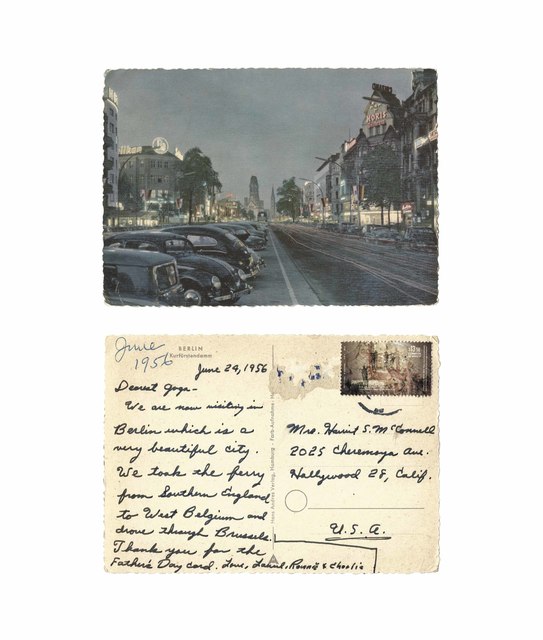 HORIS
June
1956
BERLIN
Kurfürstendamm
June 29, 1956
Dearest Goga -
We are now visiting in
Berlin which is a
very beautiful city.
We took the ferry
from Southern England
to West Belgium and
drove through Brussels.
Thank you for the
Father's Day card. Love, Laurel, Round & Charlie
Hans Andres Verlag, Hamburg - Farb-Aufnahme
Mrs. Harriet S. McConnell
2025 Cheremoya Ave.
Hollywood 28, Calif.
U.S.A.